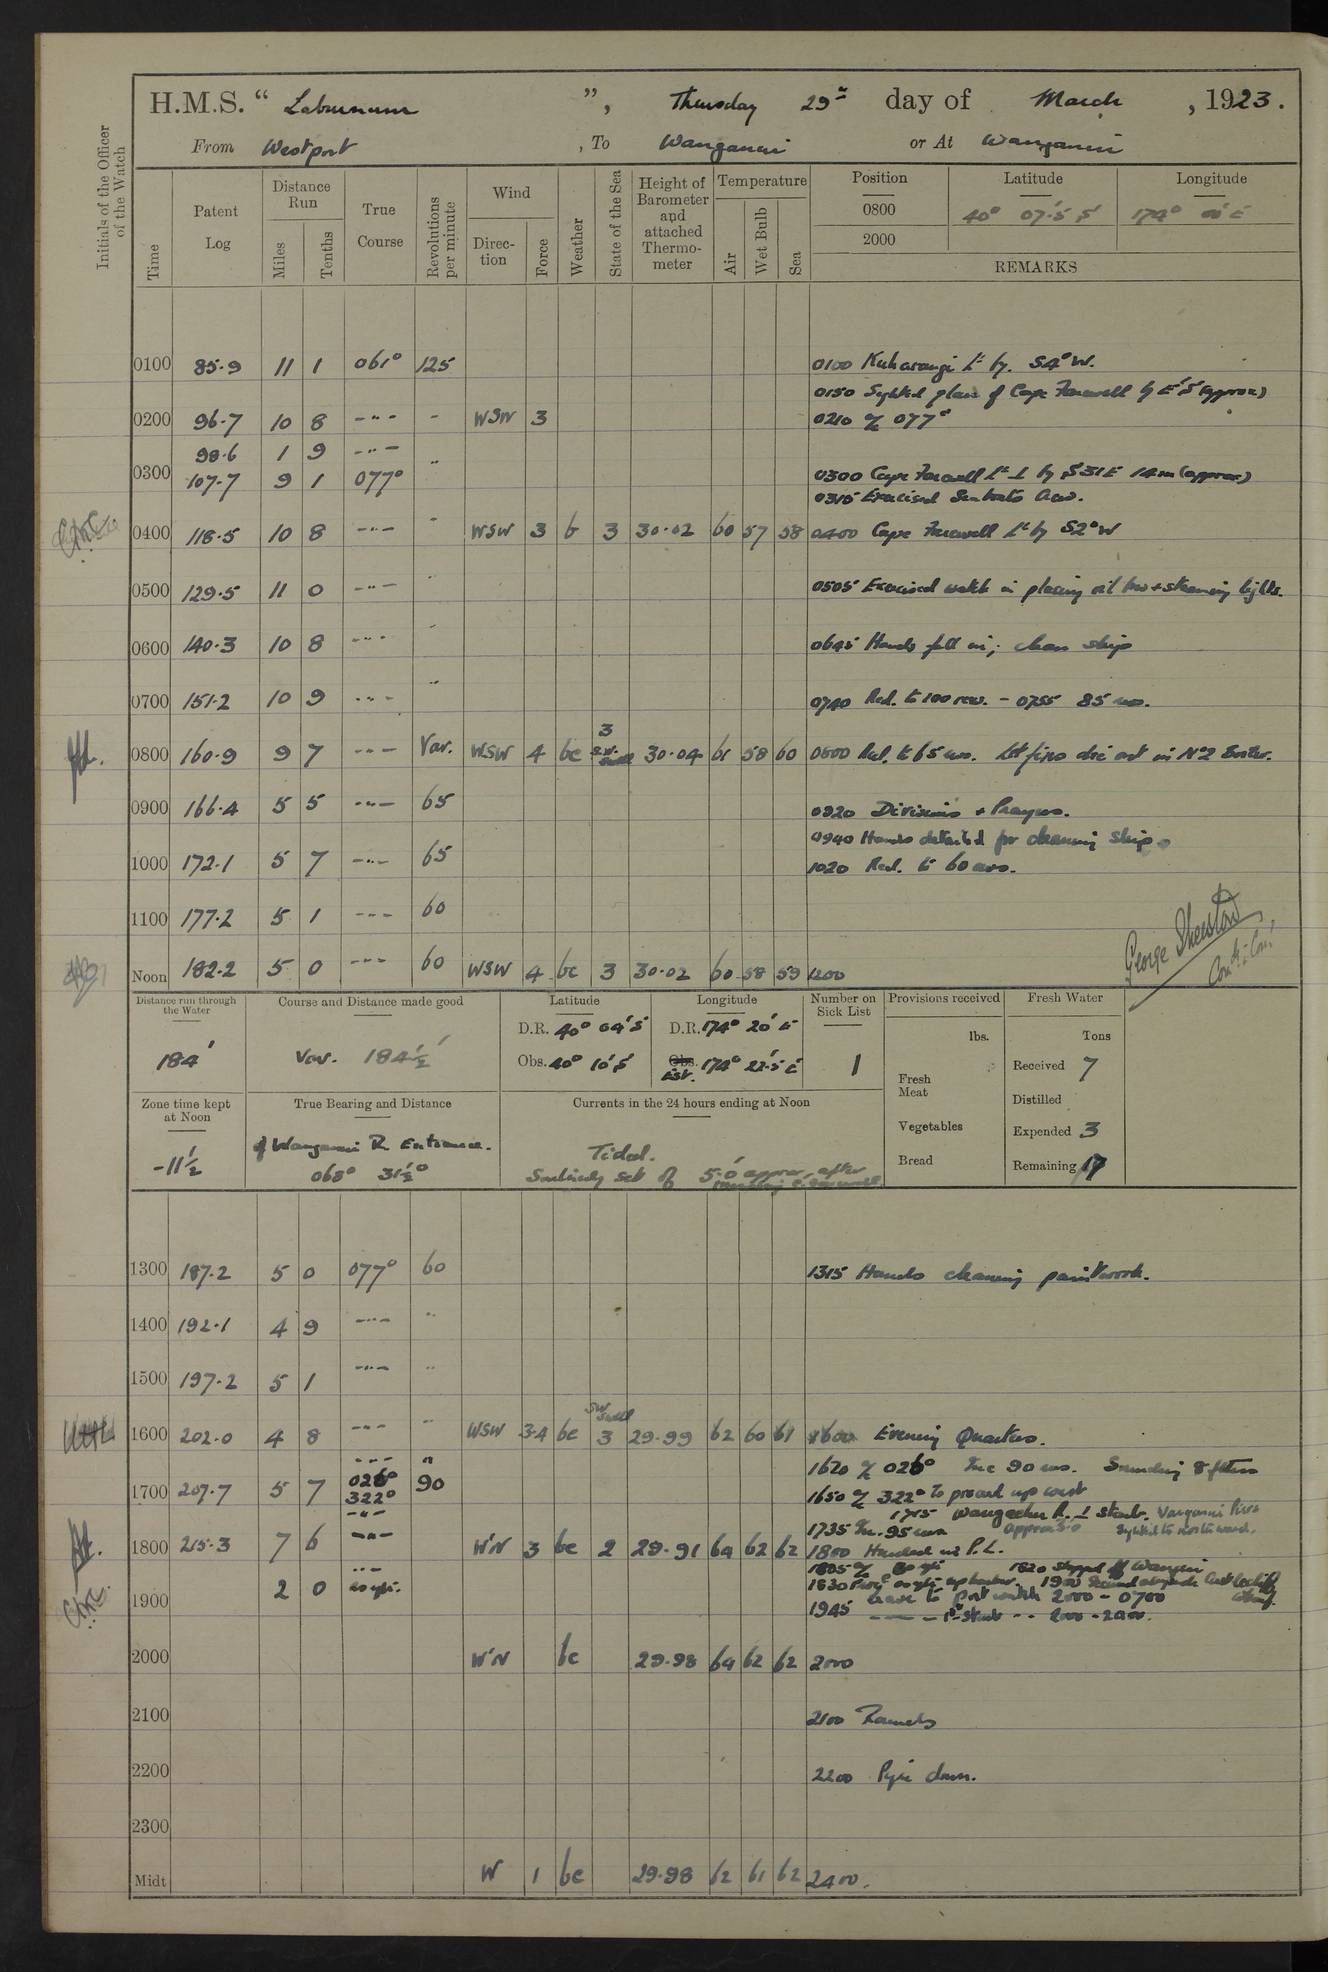 H.M.S. “ Laburnum ”, Thursday 29th day of March , 1923.
From Westport , To Wanganui or At Wanganui
Initials of the Officer of the Watch
Time
Patent Log
Distance Run
Miles
Tenths
True Course
Revolutions per minute
Wind
Direc-tion
Force
Weather
State of the Sea
Height of Barometer and attached Thermo-meter
Temperature
Air
Wet Bulb
Sea
Position Latitude Longitude
0800 40° 07'.5 S 174° 00' E
2000
REMARKS
0100 85.9 11 1 061° 125 0100 Kaharangi Lt by. S4°W.
0150 Sighted glare of Cape Farewell by E'S (approx)
0200 96.7 10 8 -"- - WSW 3 0210 a/c 077°
98.6 1 9 -"-
0300 107.7 9 1 077° " 0300 Cape Farewell Lt ⊥ by S31E 14m (approx)
0315 Exercised Seaboats Crew.
0400 118.5 10 8 -"- " WSW 3 b 3 30.02 60 57 58 0400 Cape Farewell Lt by S2°W
0500 129.5 11 0 -"- " 0505 Exercised watch in placing oil bow + steaming lights.
0600 140.3 10 8 -"- " 0645 Hands fell in; clean ship
0700 151.2 10 9 -"- " 0740 Red. to 100 rev. - 0755 85 revs.
0800 160.9 9 7 -"- Var. WSW 4 bc 3 S.W. Swell 30.04 61 58 60 0800 Red. to 65 revs. Let fires die out in No 2 Boiler.
0900 166.4 5 5 -"- 65 0920 Divisions + Prayers.
0940 Hands detailed for cleaning ship.
1000 172.1 5 7 -"- 65 1020 Red. to 60 revs.
1100 177.2 5 1 -"- 60
Noon 182.2 5 0 -"- 60 WSW 4 bc 3 30.02 60 58 59 1200
George Sheeston
Distance run through the Water
184'
Course and Distance made good
Var. 184½'
Latitude
D.R. 40° 04' S
Obs. 40° 10' S
Longitude
D.R. 174° 20' E
Obs. Est. 174° 22.5' E
Number on Sick List
1
Provisions received
lbs.
Fresh Meat
Vegetables
Bread
Fresh Water
Tons
Received 7
Distilled
Expended 3
Remaining 17
Zone time kept at Noon
-11½
True Bearing and Distance
of Wanganui R. Entrance.
068° 31½'
Currents in the 24 hours ending at Noon
Tidal.
Southerly set of 5.0 approx. after
rounding C. Farewell.
1300 187.2 5 0 077° 60 1315 Hands cleaning paintwork.
1400 192.1 4 9 -"- "
1500 197.2 5 1 -"- "
1600 202.0 4 8 -"- " WSW 3.4 bc SW Swell 3 29.99 62 60 61 1600 Evening Quarters.
-"- " 1620 a/c 026° Inc 90 revs. Sounding 8 fthms
1700 207.7 5 7 026° 322° 90 1650 a/c 322° to proceed up coast
1715 Wangaehu R. ⊥ starb. Wanganui River
-"- 1735 Inc. 95 revs approx 5.0 Sighted to northward.
1800 215.3 7 6 -"- W'N 3 bc 2 29.91 64 62 62 1800 Handed in P.L.
1805 a/c 1820 stopped off Wanganui
1830 up harbour. 1900 Secured alongside Castlecliff Wharf.
1900 2 0 Leave to port watch 2000 - 0700
1945 -"- - 1st starb -"- 2000 - 2200.
2000 W'N bc 29.98 64 62 62 2000
2100 2100 Rounds
2200 2200 Pipe down.
2300
Midt W 1 bc 29.98 62 61 62 2400.